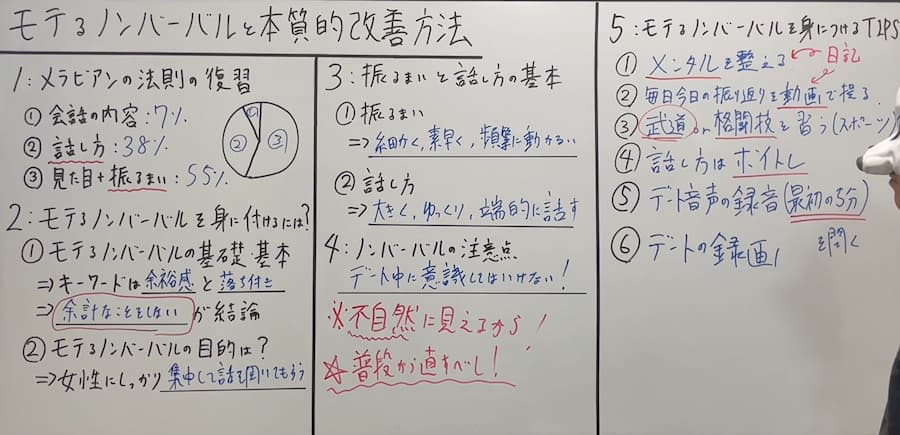 モテるノンバーバルと本質的改善方法
1:メラビアンの法則の復習
①会話の内容:7%
②話し方:38%
③見た目+振るまい:55%
① ② ③
2:モテるノンバーバルを身に付けるには?
①モテるノンバーバルの基礎・基本
⇒キーワードは余裕感と落ち付き
⇒余計なことをしないが結論
②モテるノンバーバルの目的は?
⇒女性にしっかり集中して話を聞いてもらう
3:振るまいと話し方の基本
①振るまい
⇒細かく,素早く,頻繁に動かない
②話し方
⇒大きく,ゆっくり,端的に話す
4:ノンバーバルの注意点
デート中に意識してはいけない!
※不自然に見えるから!
☆普段から直すべし!
5:モテるノンバーバルを身につけるTIPS
①メンタルを整える 日記
②毎日今日の振り返りを動画で撮る
③武道or格闘技を習う(スポーツ)
④話し方はボイトレ
⑤デート音声の録音(最初の5分)
を聞く
⑥デートの録画